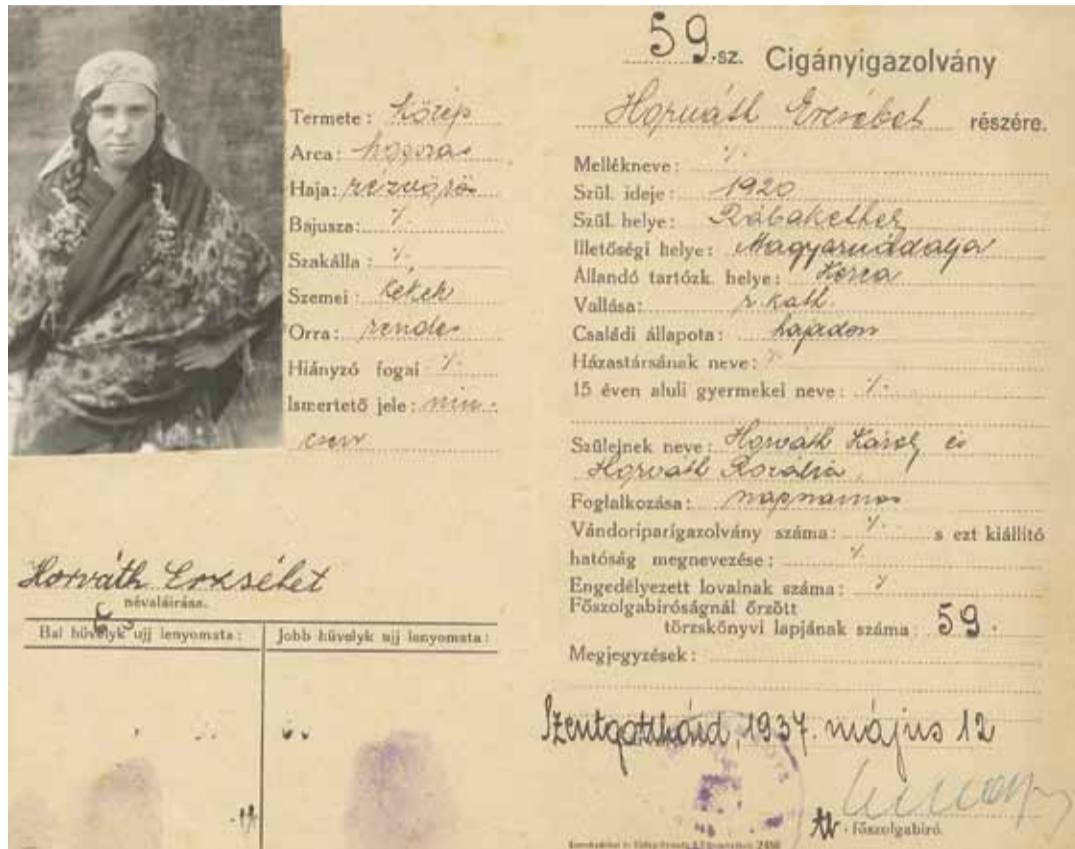 Termete: közép
Arca: hosszas
Haja: rézvörös
Bajusza: ·/.
Szakálla: ·/.
Szemei: kékek
Orra: rendes
Hiányzó fogai ·/.
Ismertető jele: nin-
csen
Horváth Erzsébet
névaláirása.
Bal hüvelyk ujj lenyomata:
Jobb hüvelyk ujj lenyomata:
59.sz. Cigányigazolvány
Horváth Erzsébet részére.
Mellékneve: ·/.
Szül. ideje: 1920
Szül. helye: Rábakethely
Illetőségi helye: Magyarnádalja
Állandó tartózk. helye: Kerca
Vallása: r. kath.
Családi állapota: hajadon
Házastársának neve: ·/.
15 éven aluli gyermekei neve: ·/.
Szüleinek neve: Horváth Károly és
Horváth Rozália,
Foglalkozása: napszámos
Vándoriparigazolvány száma: ·/. s ezt kiállító
hatóság megnevezése: ·/.
Engedélyezett lovainak száma: ·/.
Főszolgabíróságnál őrzött
törzskönyvi lapjának száma: 59.
Megjegyzések:
Szentgotthárd, 1937. május 12
főszolgabíró.